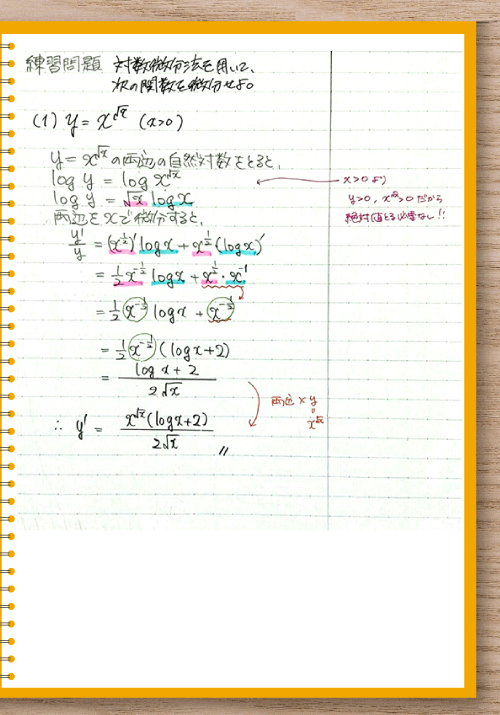 練習問題 対数微分法を用いて、
次の関数を微分せよ。
(1) y = x^√x (x>0)
y = x^√x の両辺の自然対数をとると、
log y = log x^√x
x>0 より
log y = √x log x
y>0, x^√x>0 だから
絶対値とる必要なし!!
両辺をxで微分すると、
y'/y = (x^(1/2))' log x + x^(1/2) (log x)'
= 1/2 x^(-1/2) log x + x^(1/2)・x^(-1)
= 1/2 x^(-1/2) log x + x^(-1/2)
= 1/2 x^(-1/2) (log x + 2)
= (log x + 2)/(2√x)
両辺 × y
x^√x
∴ y' = x^√x (log x + 2)/(2√x) //